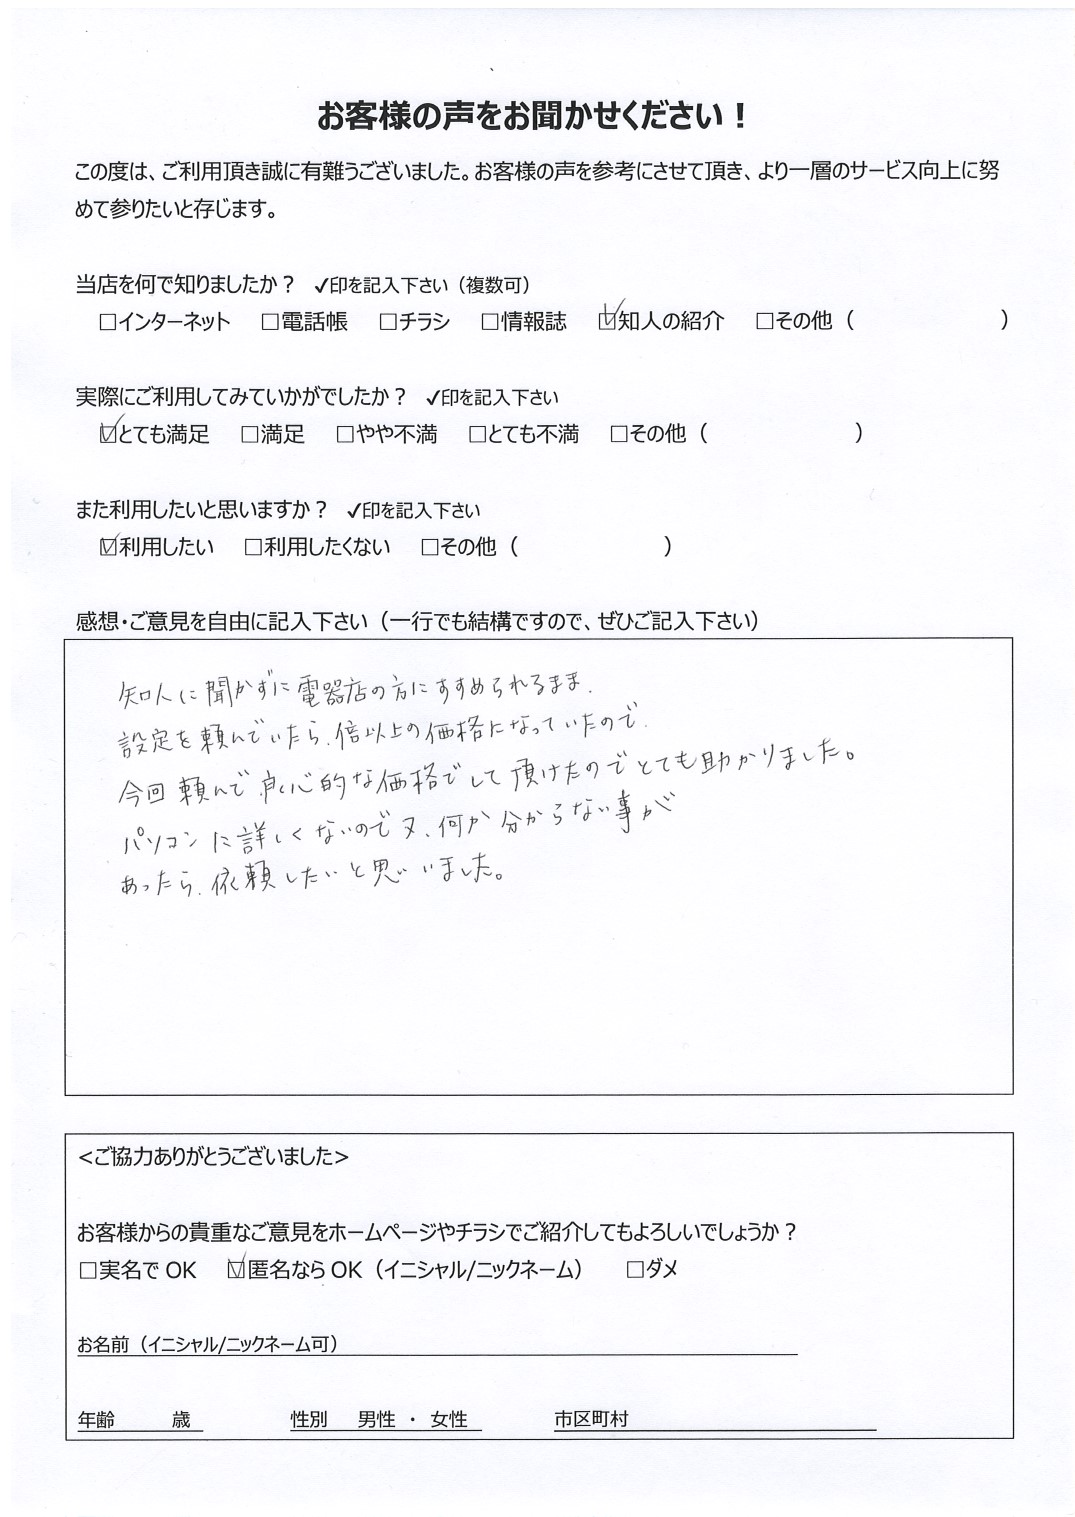 お客様の声をお聞かせください！
この度は、ご利用頂き誠に有難うございました。お客様の声を参考にさせて頂き、より一層のサービス向上に努
めて参りたいと存じます。
当店を何で知りましたか？ ✓印を記入下さい（複数可）
□インターネット □電話帳 □チラシ □情報誌 ☑知人の紹介 □その他（ ）
実際にご利用してみていかがでしたか？ ✓印を記入下さい
☑とても満足 □満足 □やや不満 □とても不満 □その他（ ）
また利用したいと思いますか？ ✓印を記入下さい
☑利用したい □利用したくない □その他（ ）
感想・ご意見を自由に記入下さい（一行でも結構ですので、ぜひご記入下さい）
知人に聞かずに電器店の方にすすめられるまま、
設定を頼んでいたら、倍以上の価格になっていたので、
今回頼んで、良心的な価格でして頂けたのでとても助かりました。
パソコンに詳しくないので又、何か分からない事が
あったら、依頼したいと思いました。
<ご協力ありがとうございました>
お客様からの貴重なご意見をホームページやチラシでご紹介してもよろしいでしょうか？
□実名で OK ☑匿名なら OK（イニシャル/ニックネーム） □ダメ
お名前（イニシャル/ニックネーム可）
年齢 歳 性別 男性 ・ 女性 市区町村